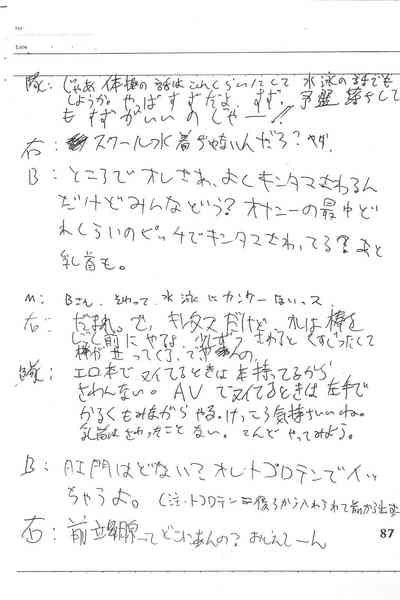 隊: じゃあ 体操の話はこれくらいにして 水泳の話でも
しようか。やっぱすずだよ すず。
も すずがいいのじゃー!!
右: スクール水着ぢゃないんだろ? ヤダ。
B: ところでオレさあ、よくキンタマさわるん
だけどみんなどう? オナニーの最中ど
れくらいのピッチでキンタマさわってる? あと
乳首も。
M: Bさん、それって、水泳にカンケーないっス
右: だまれ。で、キンタマだけど、オレは棒を
前にやるな。さわるとくすぐったくて
隊: エロ本でヌイてるときは本持ってるから
さわんない。AVでヌイてるときは左手で
かるくもみながらやる。けっこう気持ちいいね。
乳首はさわったことない。こんどやってみよう。
B: 肛門はどない? オレ、トコロテンでイッ
ちゃうよ。(注・トコロテン=後ろから入れられて前から出す
右: 前立腺ってどこにあんの? おしえてーん
87